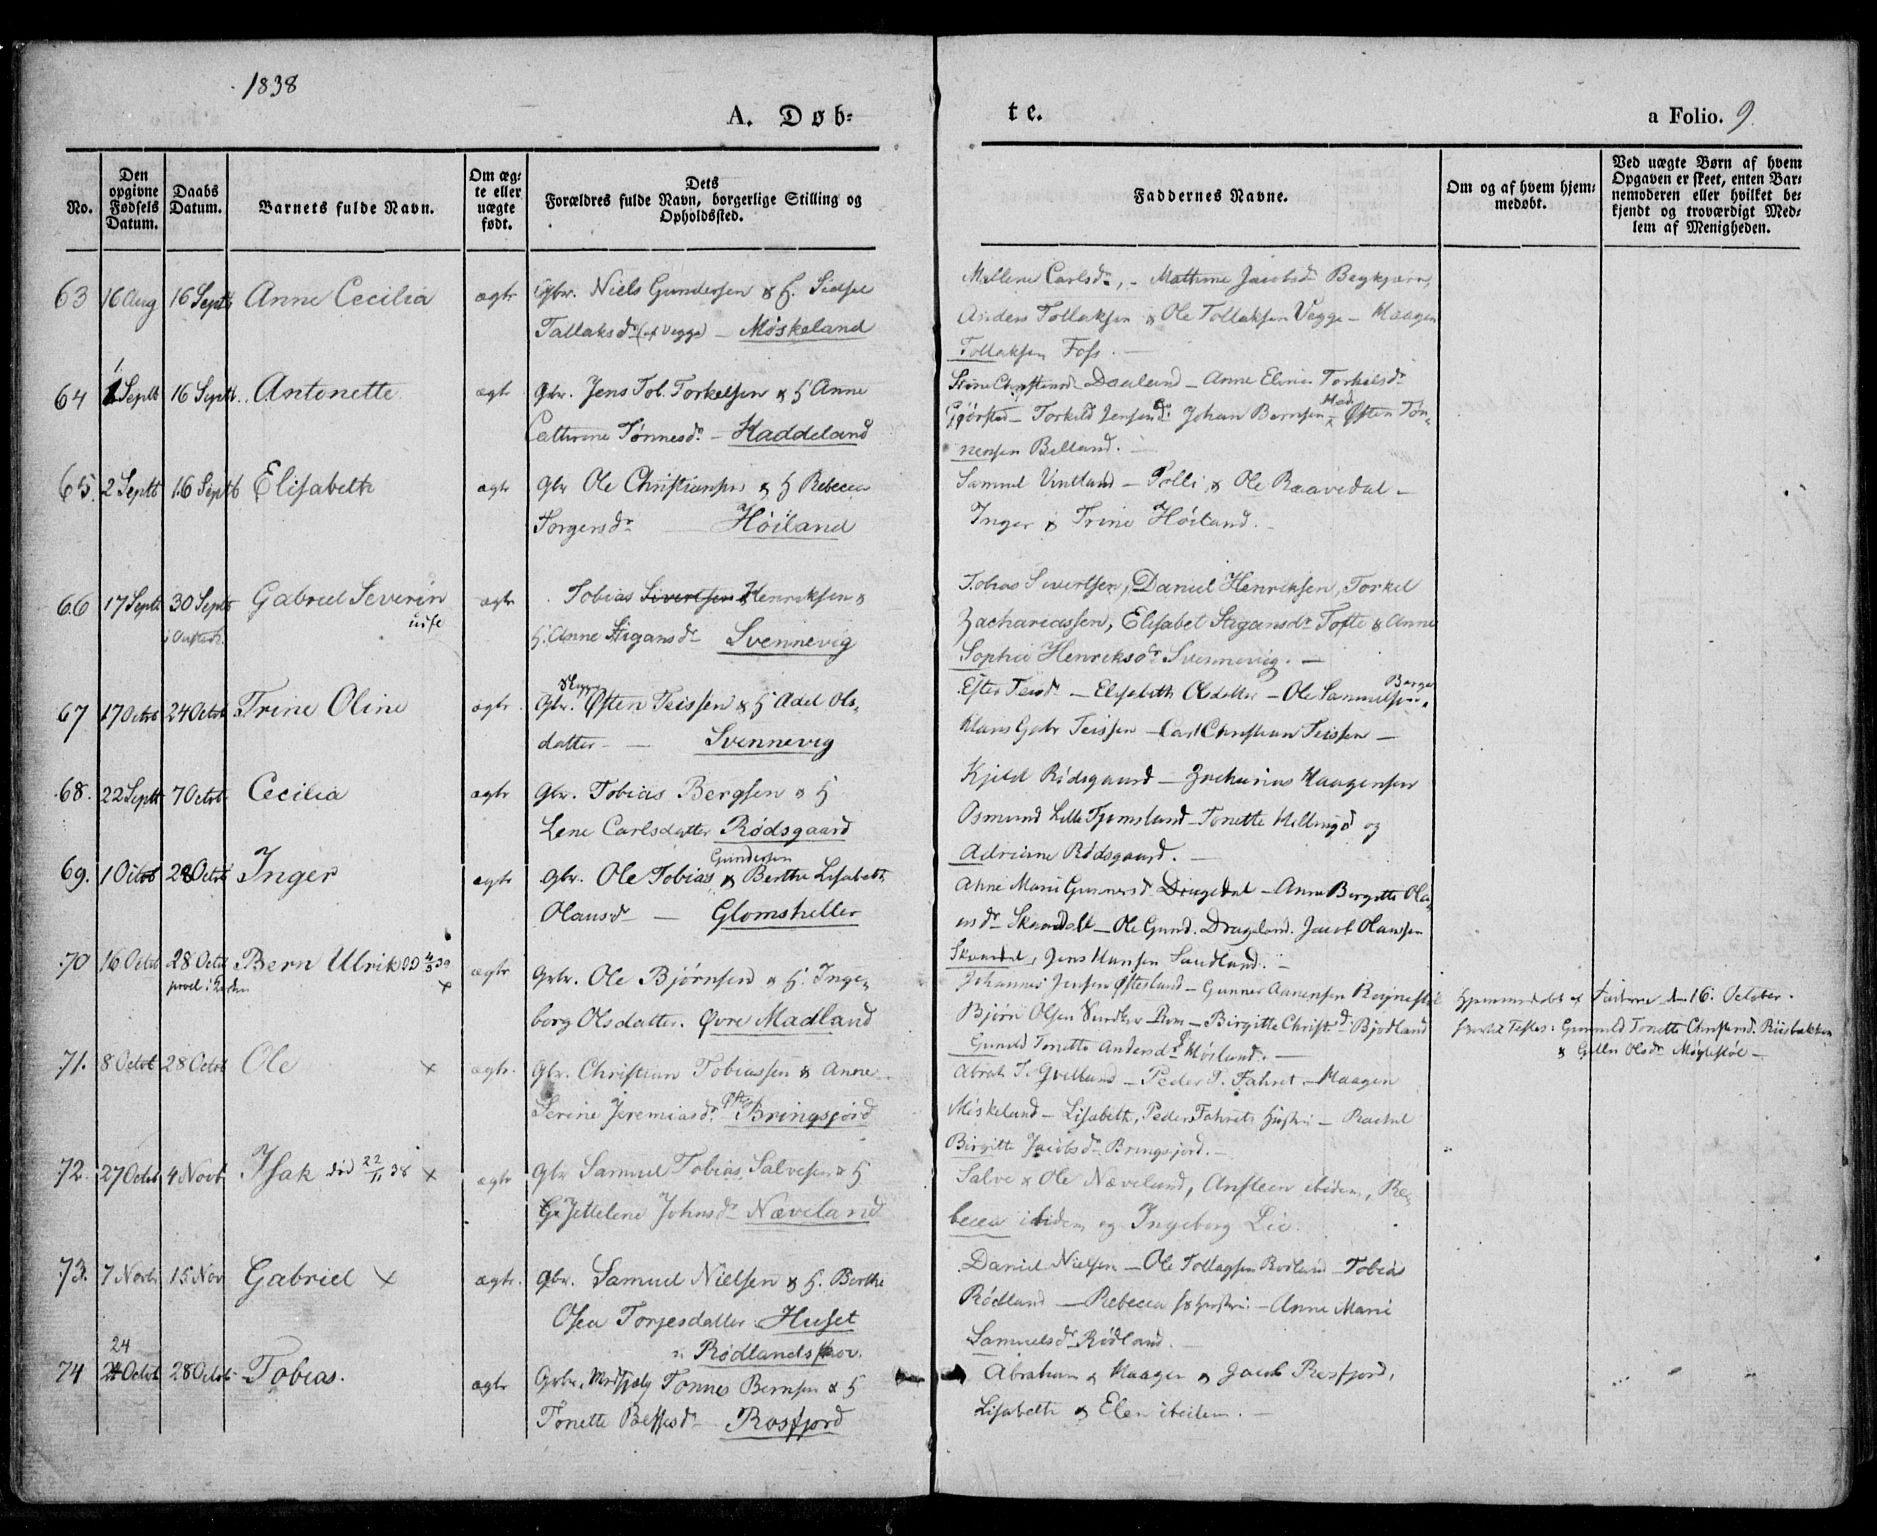 1838
A. Døb-
te.
a Folio. 9
No.
Den opgivne Fødsels Datum.
Daabs Datum.
Barnets fulde Navn.
Om ægte eller uægte født.
Dets Forældres fulde Navn, borgerlige Stilling og Opholdssted.
Faddernes Navne.
Om og af hvem hjemmedøbt.
Ved uægte Børn af hvem Opgaven er skeet, enten Barnemoderen eller hvilket bekjendt og troværdigt Medlem af Menigheden.
63 16 Aug 16 Septb Anne Cecilia ægte Gbr. Niels Gundersen & H. Sidsel
Tallaksdr (af Vegge) – Møskeland
Mallene Carlsdr, – Mathine Jacobsdr Begkjærn,
Anders Tollaksen & Ole Tollaksen Vegge – Haagen
Tollaksen Foss. –
64 1 Septb 16 Septb. Antonette ægte Gbr. Jens Tob. Torkelsen & H Anne
Cathrine Tønnesdr – Haddeland
Daeland – Anne Eline Torkilsdr
– Torkild Jensen Johan Bernsen – Østen Tøn-
nensen Belland. –
65. 2 Septb 16 Septb Elisabeth ægte Gbr Ole Christiansen & H Rebecca
Torgersdr – Høiland
Samuel Vintland – Tolli & Ole Raavedal –
Inger & Trine Høiland. –
66 17 Septb 30 Septb Gabriel Severin ægte Tobias Sivertsen Henriksen &
H. Anne Stigansdr Svennevig
Tobias Sivertsen, Daniel Henriksen, Torkel
Zachariassen, Elisabet Stigansdr Tofte & Anne
Sophie Henriksdr Svennevig. –
67 17 Octob 24 Octob Trine Oline ægte. Gbr. Østen Teissen & H Adel Ols-
datter – Svennevig
Ester Teisdr – Elisabeth Olsdatter – Ole Samuelsen
Klaus Gabr Teissen – Carl Christian Teissen –
68. 22 Septb 7 Octob. Cecilia ægte Gbr. Tobias Bergsen & H
Lene Carlsdatter Rødsgaard
Kjeld Rødsgaard – Zacharias Haagensen
Osmund Lille Tjomsland – Tonette og
Adriane Rødsgaard. –
69. 1 Octob 28 Octob Inger ægte Gbr. Ole Tobias Gundersen & Berthe Lisabeth
Olausdr – Glomsheller
Anne Marie Gunnersdr Dragedal – Anne Birgitte Ola-
usdr Skaandal – Ole Gund. Drageland. Jacob Olaussen
Skaandal, Jens Hansen Sandland. –
70 16 Octob 28 Octob Bern Ulrik DD 4/3 39 × ægte Gbr. Ole Bjørnsen & H. Inge-
borg Olsdatter. Øvre Madland
Johannes Jensen Øftesland – Gunner Aanensen
Bjørn Olsen – Birgitte Christ.dr Bjodland
Gunild Tonette Andersdr Møsland. –
Hjemmedøbt af Faderen den 16. October.
Gunild Tonette Christensdr Riisbakken
& Olsdr Møglestøe –
71. 8 Octob 28 Octob Ole × ægte. Gbr. Christian Tobiassen & Anne
Serine Jeremiasdr Bringsjord
Abrah T. Qvelland – Peder P. Fahret – Haagen
Møskeland – Lisabeth, Peder Fahrets Hustru – Rachel
Birgitte Jacobsdr Bringsjord. –
72. 27 Octob 4 Novb Isak død 22/11 38 × ægte Gbr Samuel Tobias Salvesen & H
Jettelene Johnsdr Næveland
Salve & Ole Næveland, Ansteen ibidem, Re-
becca ibidem og Ingeborg Lie.
73. 7 Novb 15 Nov Gabriel × ægte. Gbr. Samuel Nielsen & H. Berthe
Osea Torjesdatter Huset
i Rødlandsskov.
Daniel Nielsen – Ole Tollagsen Rødland – Tobias
Rødland – Rebecca hs hustru – Anne Marie
Samuelsdr Rødland. –
74 24 Octob 28 Octob. Tobias. ægte Gbr. Tønnes Bernsen & H
Tonette – Rosfjord
Abraham & Haagen & Jacob Rosfjord,
Lisabeth & Elen ibidem. –